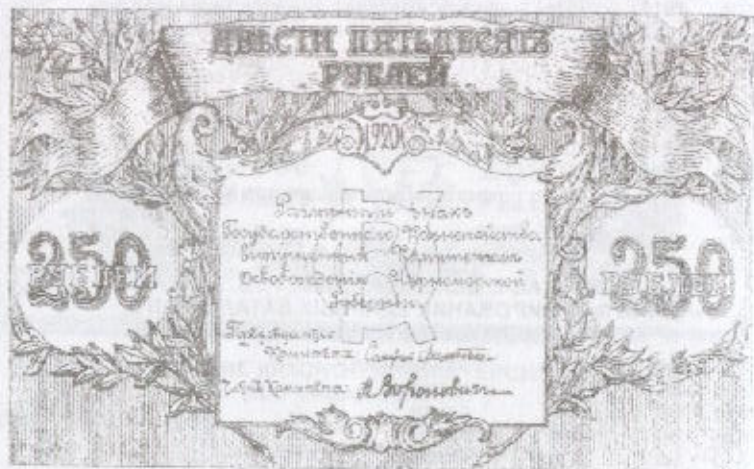 ДВѢСТИ ПЯТЬДЕСЯТЪ
РУБЛЕЙ
1920
250
РУБЛЕЙ
250
РУБЛЕЙ
Размѣнный знакъ
Государственнаго Казначейства
выпущенный Комитетомъ
Освобожденія Черноморской
Губерніи
Предсѣдатель
Комитета
Членъ Комитета Н. Вороновичъ